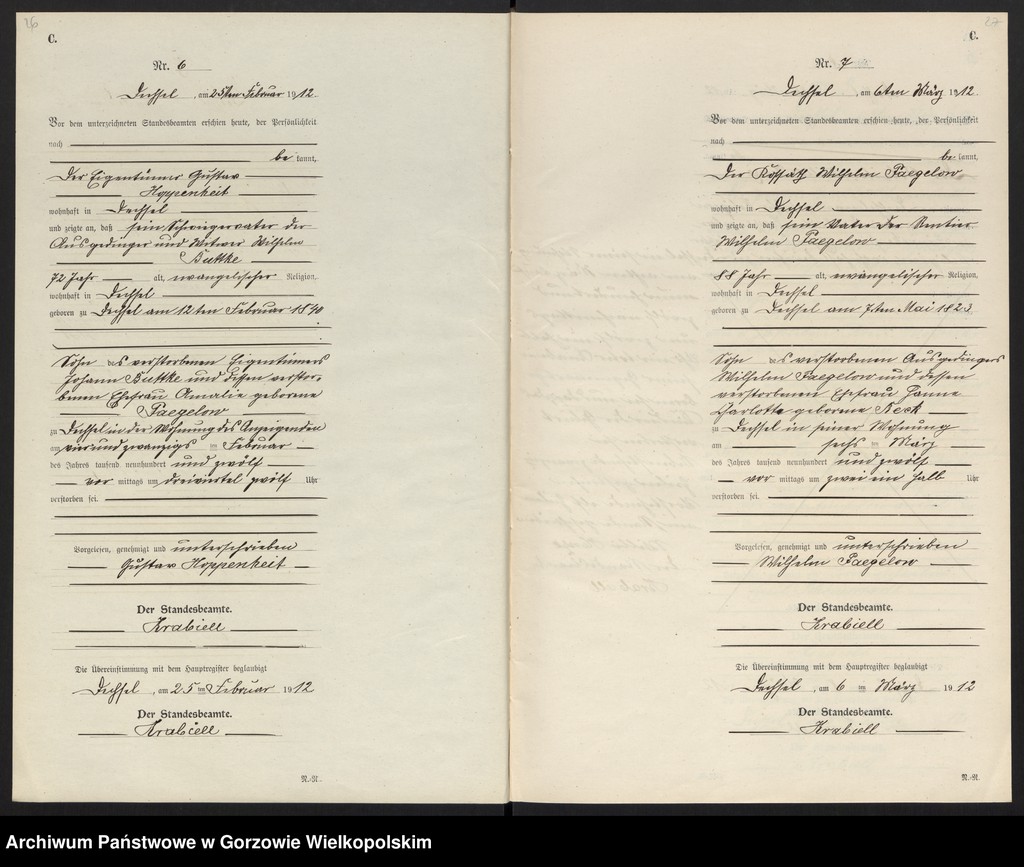 26
C.
Nr. 6
Dechsel, am 25ten Februar 1912.
Vor dem unterzeichneten Standesbeamten erschien heute, der Persönlichkeit
nach
be kannt,
Der Eigentümer Gustav
Hoppenheit
wohnhaft in Dechsel
und zeigte an, daß sein Schwiegervater der
Ausgedinger und Witwer Wilhelm
Buttke
72 Jahr alt, evangelischer Religion,
wohnhaft in Dechsel
geboren zu Dechsel am 12ten Februar 1840
Sohn des verstorbenen Eigentümers
Johann Buttke und dessen verstor-
benen Ehefrau Amalie geborene
Paegelow
zu Dechsel in der Wohnung des Anzeigenden
am vierundzwanzigs ten Februar
des Jahres tausend neunhundert und zwölf
vor mittags um dreiviertel zwölf Uhr
verstorben sei.
Vorgelesen, genehmigt und unterschrieben
Gustav Hoppenheit
Der Standesbeamte.
Krabiell
Die Übereinstimmung mit dem Hauptregister beglaubigt
Dechsel, am 25 ten Februar 1912
Der Standesbeamte.
Krabiell
N.-N.
27
C.
Nr. 7
Dechsel, am 6ten März 1912.
Vor dem unterzeichneten Standesbeamten erschien heute, der Persönlichkeit
nach
be kannt,
Der Kossäth Wilhelm Paegelow
wohnhaft in Dechsel
und zeigte an, daß sein Vater der Rentier
Wilhelm Paegelow
88 Jahr alt, evangelischer Religion,
wohnhaft in Dechsel
geboren zu Dechsel am 7ten Mai 1823
Sohn des verstorbenen Ausgedingers
Wilhelm Paegelow und dessen
verstorbenen Ehefrau Hanne
Charlotte geborene Neck
zu Dechsel in seiner Wohnung
am sechs ten März
des Jahres tausend neunhundert und zwölf
vor mittags um zwei ein halb Uhr
verstorben sei.
Vorgelesen, genehmigt und unterschrieben
Wilhelm Paegelow
Der Standesbeamte.
Krabiell
Die Übereinstimmung mit dem Hauptregister beglaubigt
Dechsel, am 6 ten März 1912
Der Standesbeamte.
Krabiell
N.-N.
Archiwum Państwowe w Gorzowie Wielkopolskim